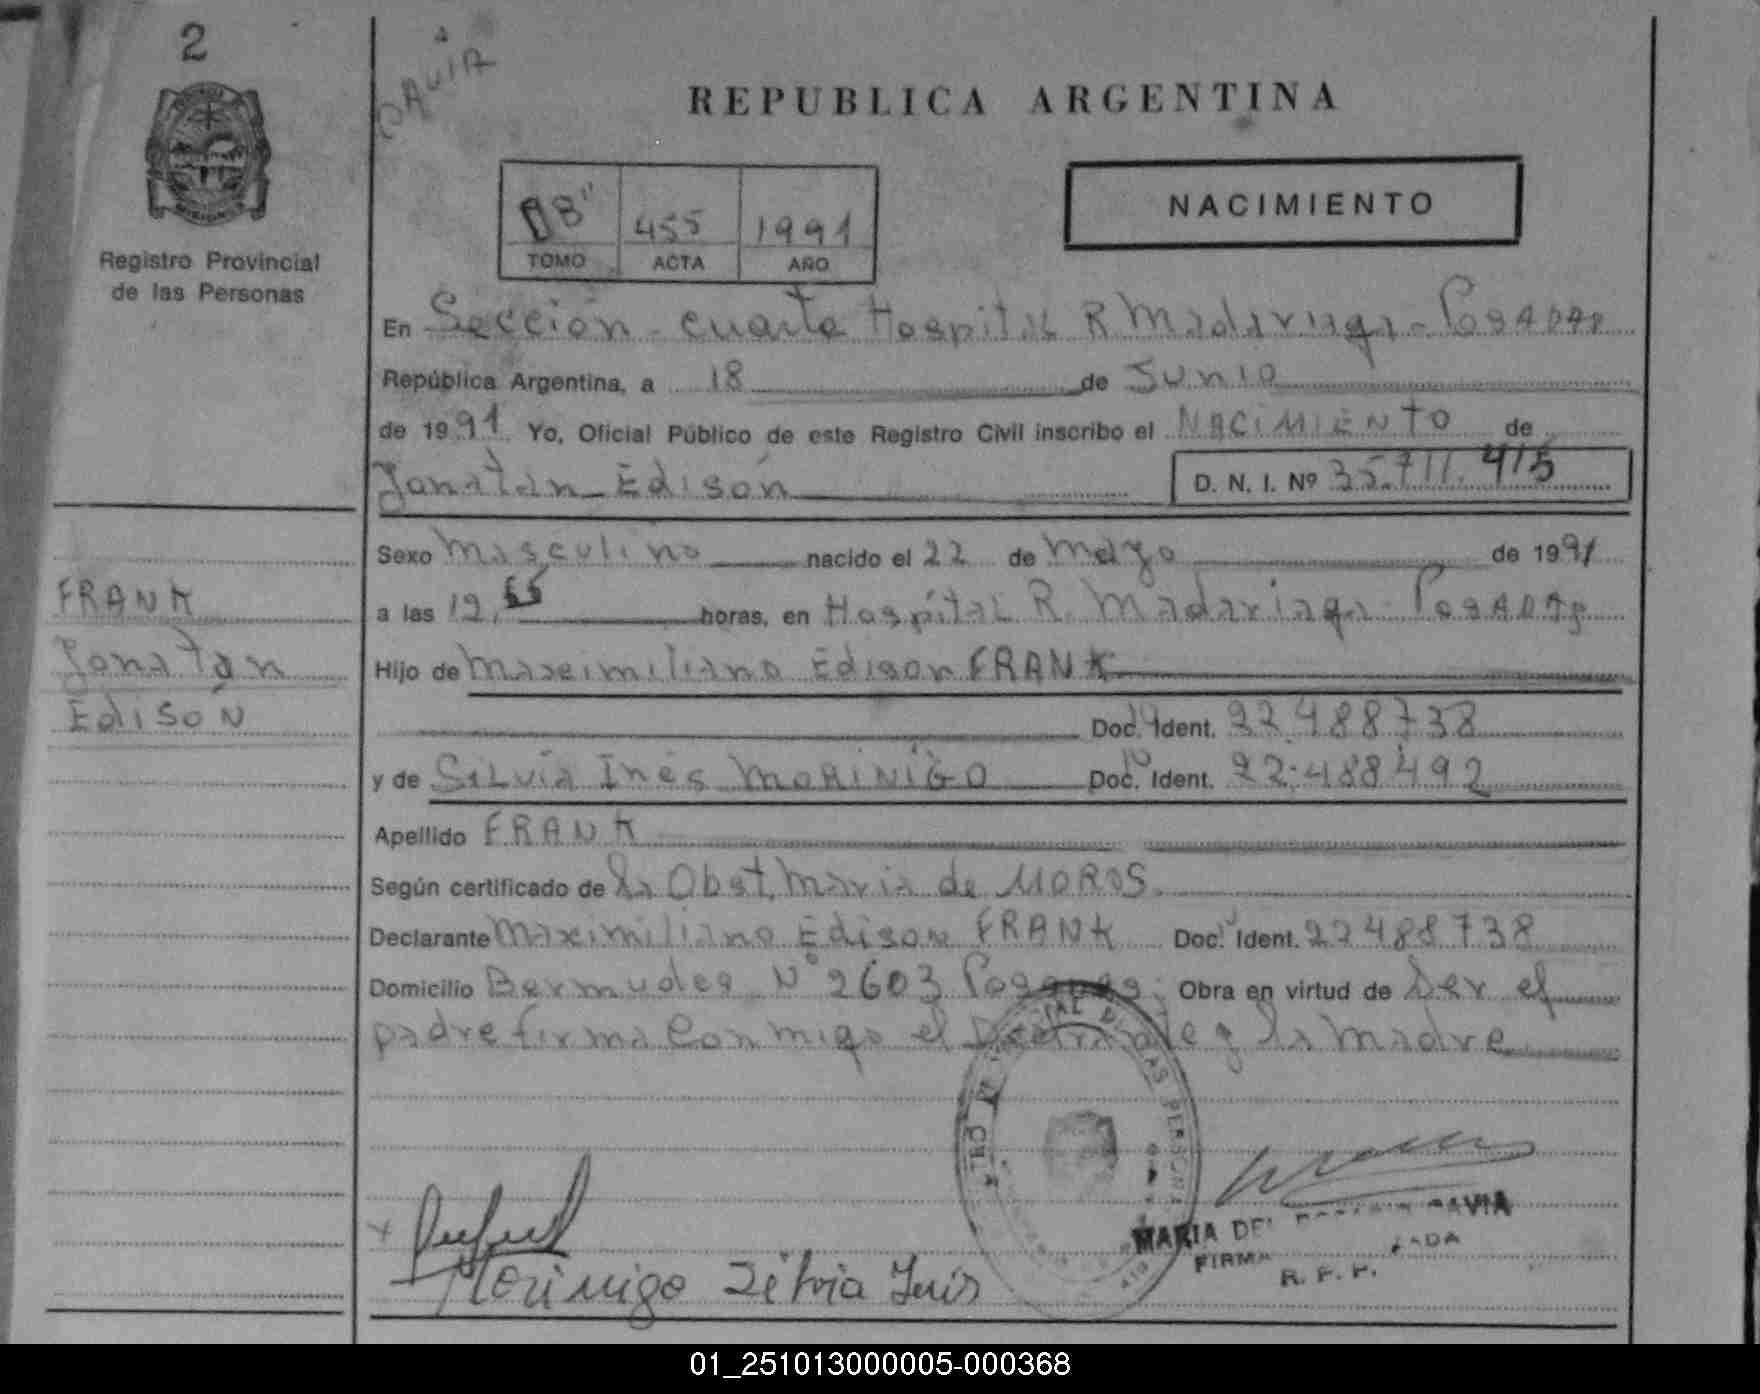 2
DAVIA
REPUBLICA ARGENTINA
NACIMIENTO
B" 455 1991
TOMO ACTA AÑO
Registro Provincial
de las Personas
En Sección - cuarta Hospital R Madariaga - Posadas
República Argentina, a 18 de Junio
de 1991 Yo, Oficial Público de este Registro Civil inscribo el NACIMIENTO de
Jonatan Edisón D. N. I. Nº 35.711.415
Sexo Masculino nacido el 22 de Mayo de 1991
a las 19,55 horas, en Hospital R. Madariaga - Posadas
FRANK
Jonatan
Edisón
Hijo de Maximiliano Edison FRANK
Doc. Ident. 22.488738
y de Silvia Inés MORINIGO Doc. Ident. 22.488492
Apellido FRANK
Según certificado de la Obst. Maria de MOROS.
Declarante Maximiliano Edison FRANK Doc. Ident. 22488738
Domicilio Bermudes Nº 2603 Posadas; Obra en virtud de Ser el
padre firma Conmigo el Declarante y la Madre
MARIA DEL DAVIA
FIRMA
R. P. P.
Morinigo Silvia Inés
01_251013000005-000368